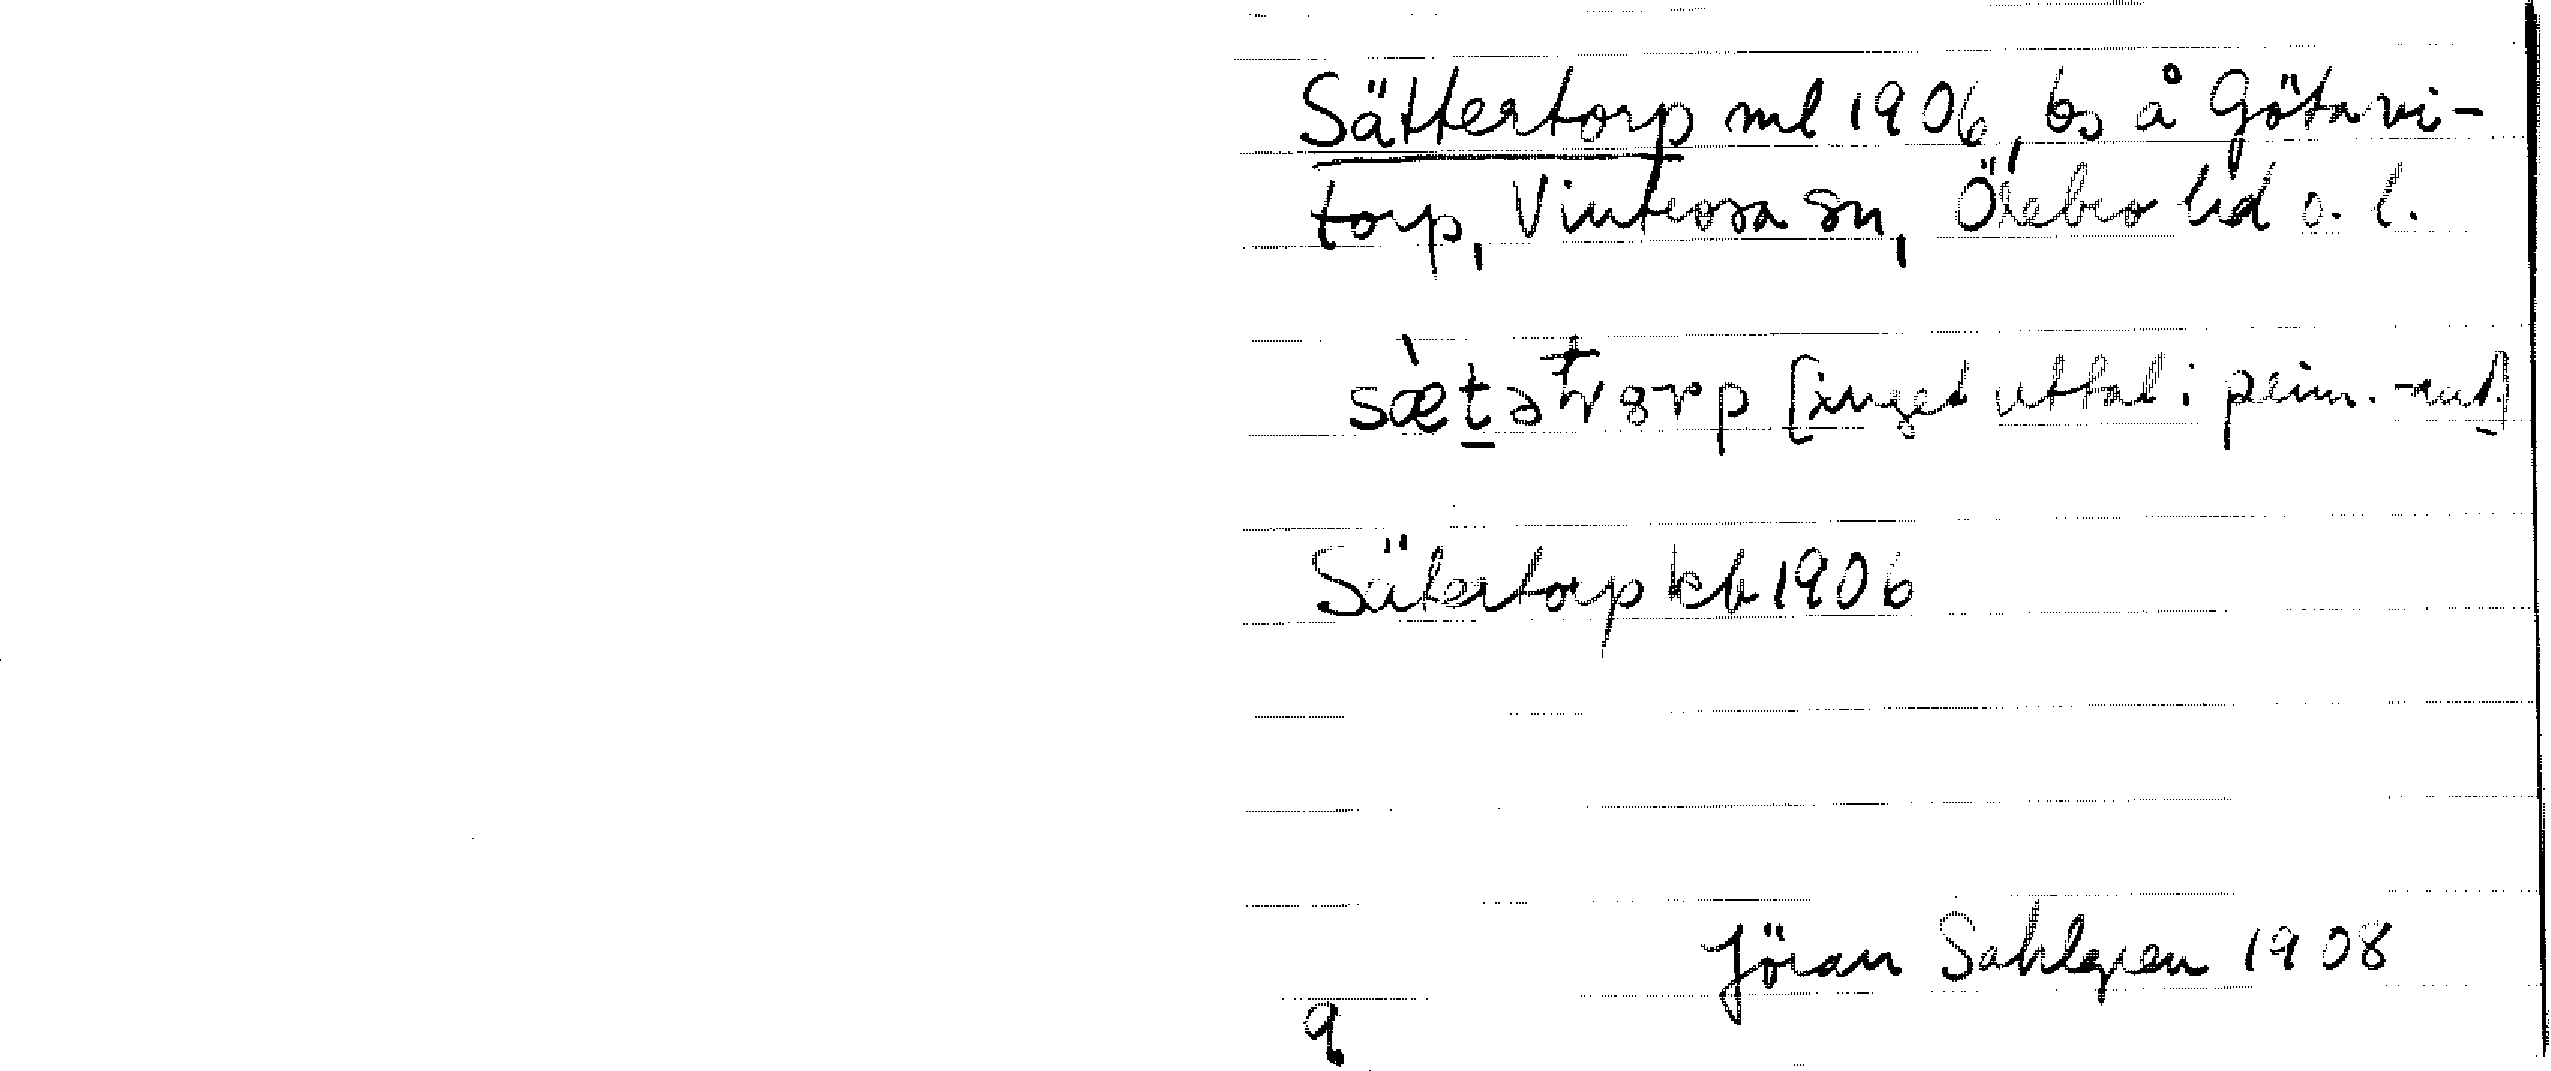 Sättertorp ml 1906, bs å Götavi-
torp, Vintrosa sn, Örebro hd o. l.
sæ̀tət̄rorp [inget uttal i prim.-uut]
Sätertorp kb 1906
Jöran Sahlgren 1908
q